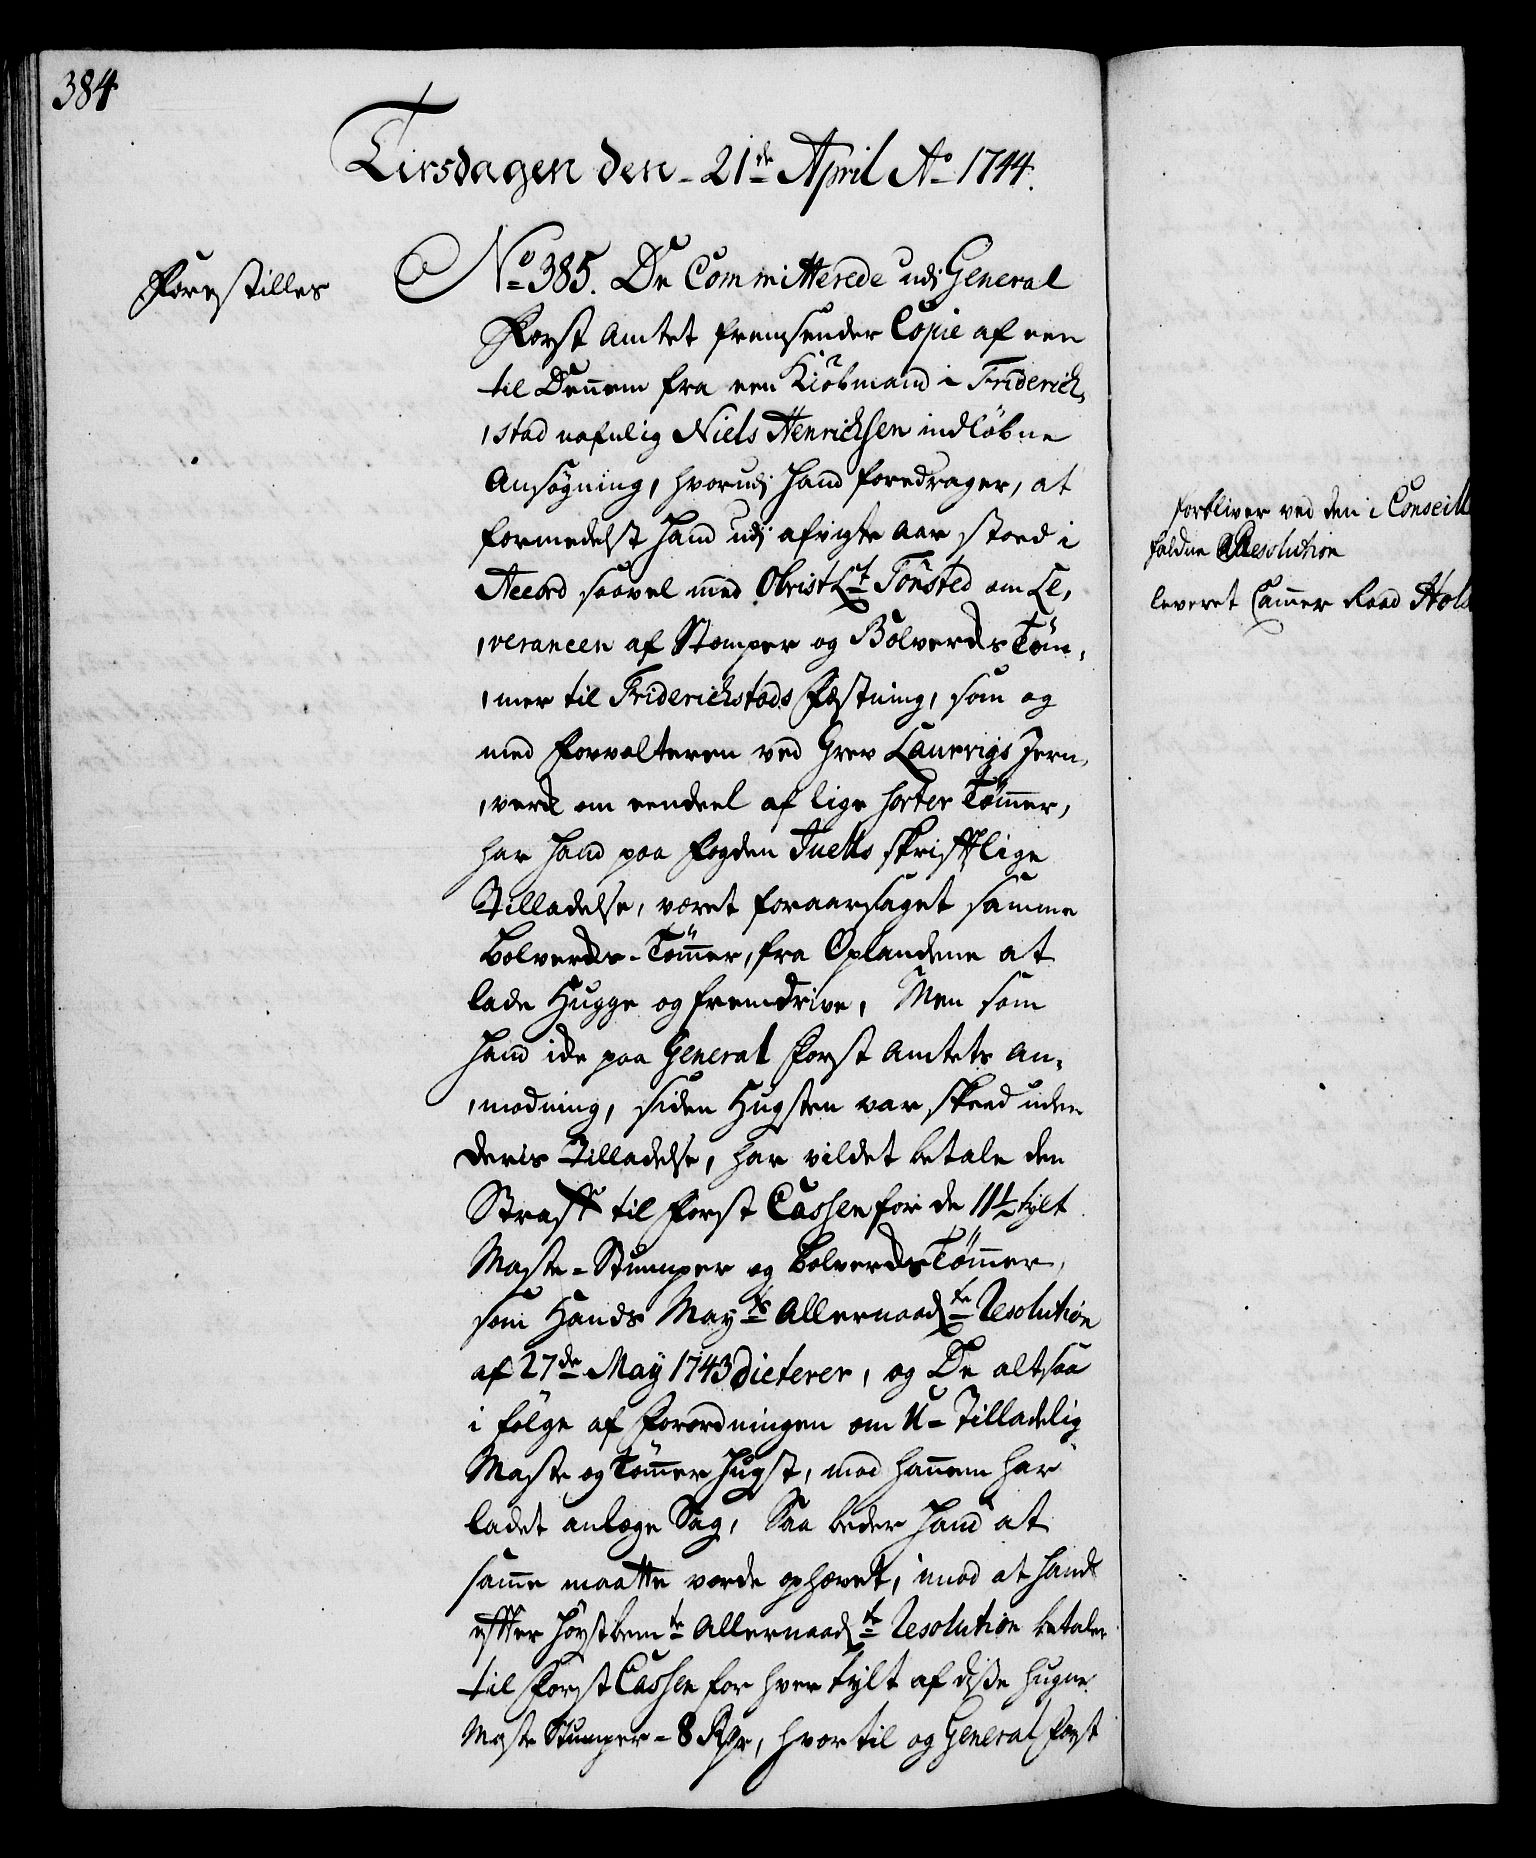 384
Tirsdagen den 21de April Ao 1744.
Forestilles
No 385. De Committerede udi General
Forst Amtet fremsender Copie af een
til Dennem fra een Kiöbmand i Friderich,
,stad nafnlig Niels Henrichsen indløbne
Ansøgning, hvorudj hand foredrager, at
formedelst hand udj afvigte Aar stoed i
Accord saavel med ObristLt Tönsted om Le,
,verancen af Stomper og Bolverds Töm,
,mer til Friderichstads Fæstning, som og
med Forvalteren ved Grev Laurvigs Jern,
,verck om eendeel af lige sorter Tömmer,
har hand paa Fogden Juells skrifftlige
Tilladelse, været foraarsaget samme
Bolverds-Tömmer, fra Oplandene at
lade Hugge og fremdrive, Men som
hand icke paa General Forst Amtets An,
,modning, siden Hugsten var skeed uden
deris Tilladelse, har vildet betale den
Straff til Forst Cassen for de 11½ tylt
Maste-Stumper og Bolverds Tömmer,
som Hands Mayts Allernaadste Resolution
af 27de May 1743 dicterer, og De altsaa
i følge af Forordningen om U-Tilladelig
Maste og Tömmer Hugst, mod hannem har
ladet anlæge Sag, Saa beder hand at
samme maatte vorde ophævet, imod at hand
effter høystbemte Allernaadste Resolution betaler
til Forst Cassen for hver Tylt af disse hugne
Maste Stumper - 8 Rdr, hvortil og General Forst
forbliver ved den i Conseill
faldne Resolution
leveret Cammer Raad